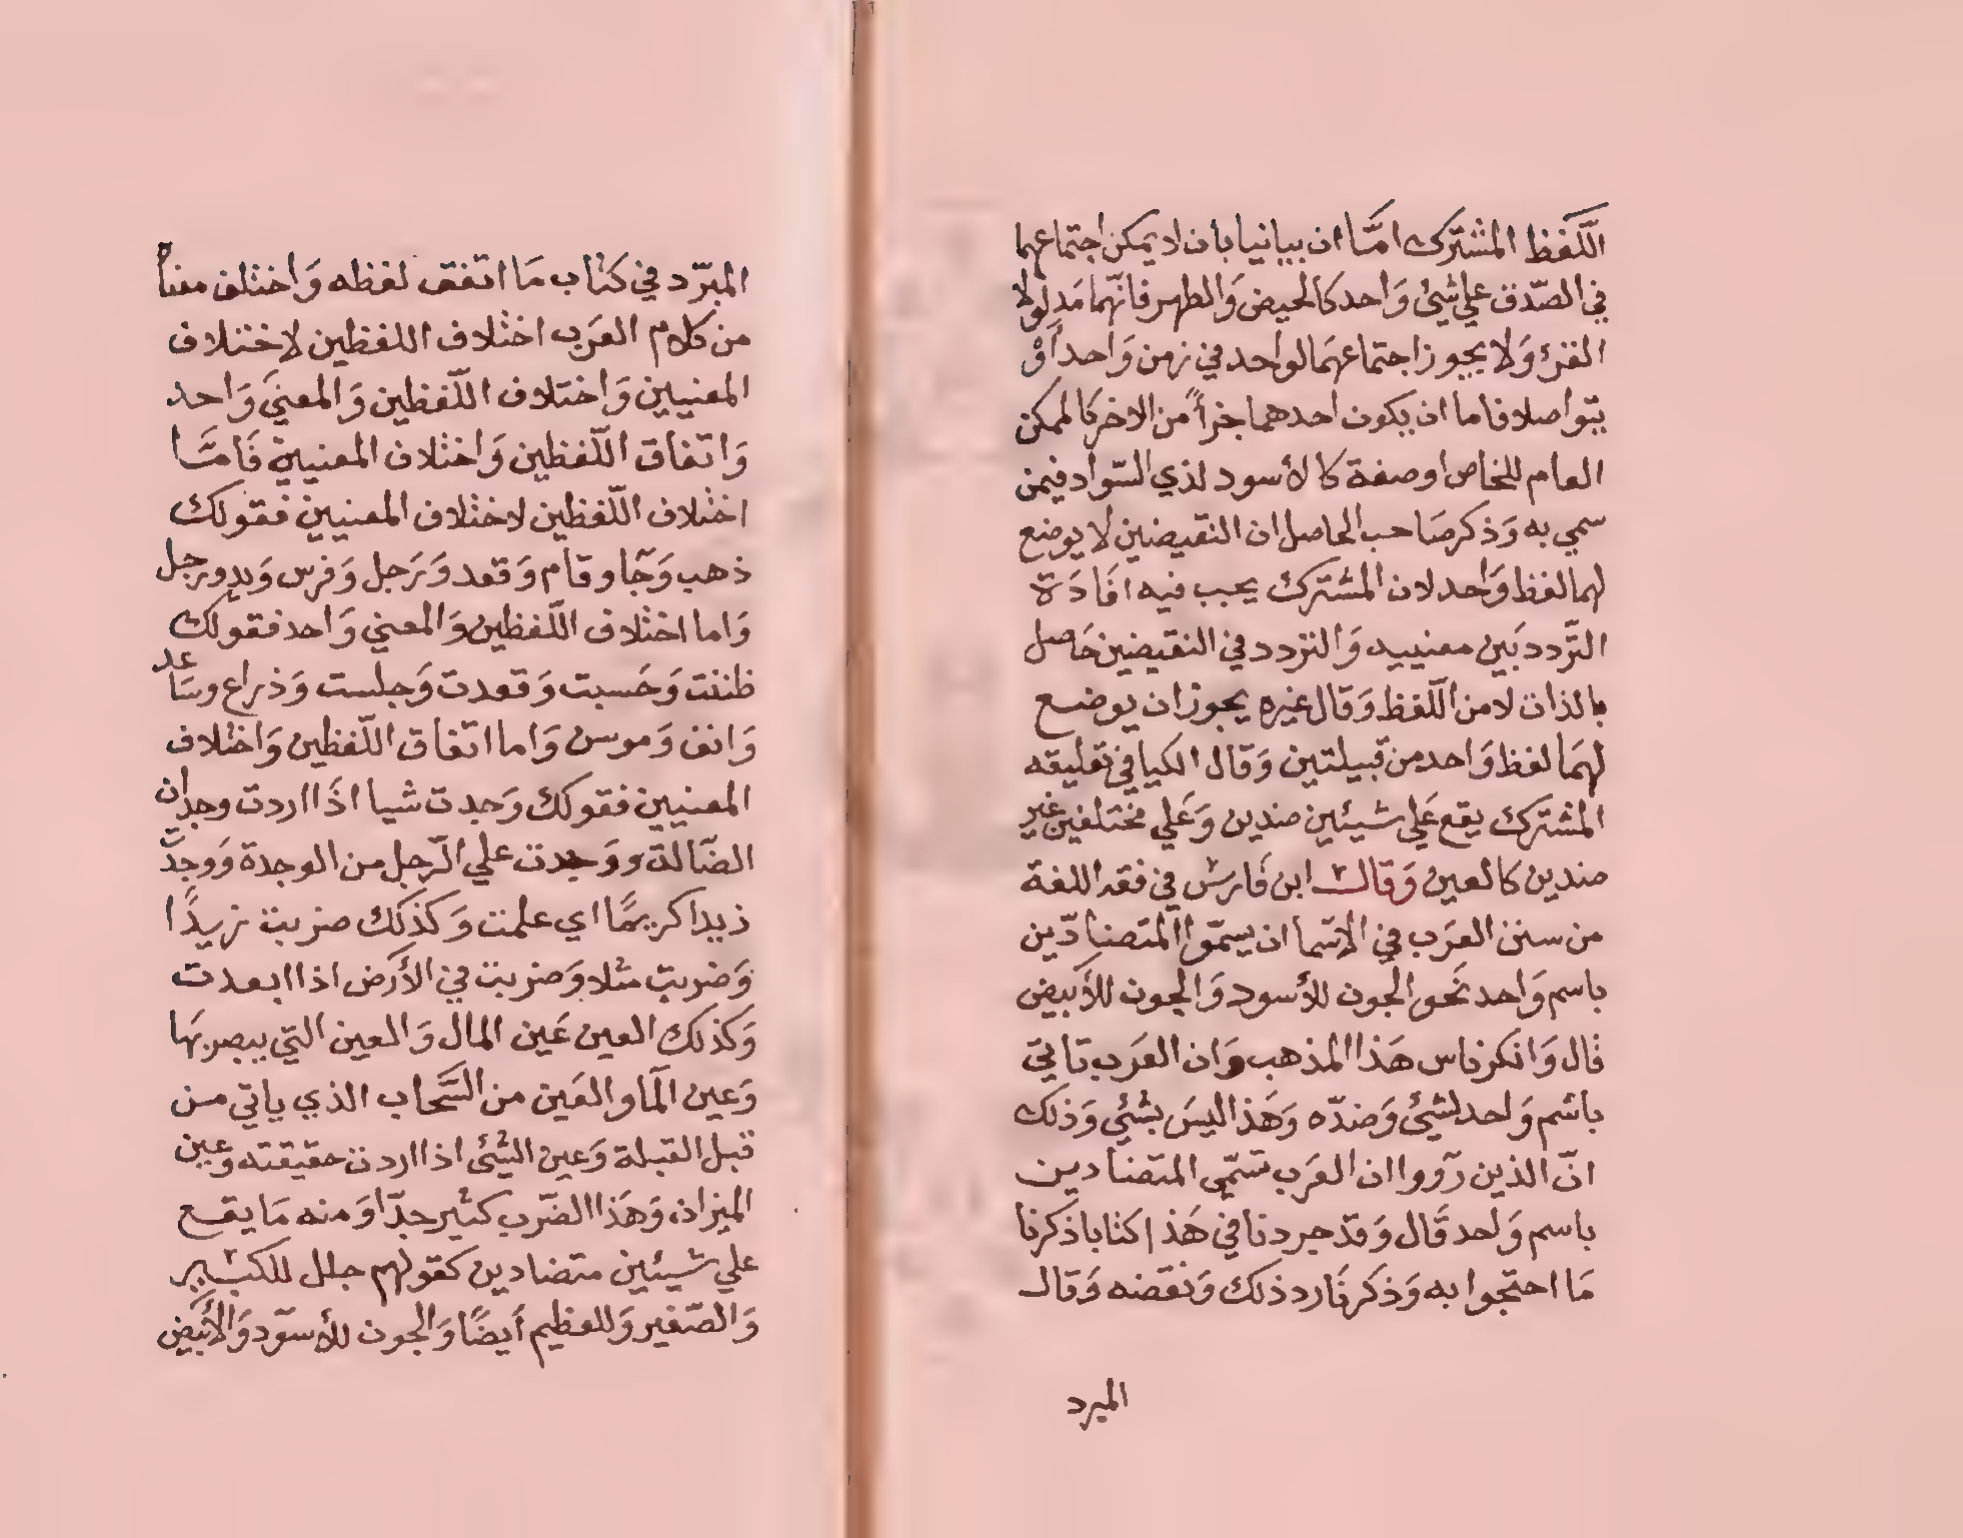 اللّفظ المشترك امّا ان يباينا بان لا يمكن اجتماعهما
في الصّدق علي شيئ وَاحد كالحيض وَالطهر فانّهما مَدلولا
القرء وَلا يجوز اجتماعهمَا لواحد في زمن وَاحد أوْ
يتواصلا فاما ان يكون احدهما جزأً من الاخر كالممكن
العام للخاص اوصفة كالأسود لذي السّواد فيمن
سمي به وَذكر صَاحب الحاصل ان النقيضين لا يوضع
لهما لفظ وَاحد لان المشترك يجب فيه افَادَة
التّردد بَين معنييه وَالتردد في النقيضين حَاصل
بالذات لا من اللّفظ وَقال غيره يجوز ان يوضع
لهمَا لفظ وَاحد من قبيلتين وَقال الكيا في تعليقه
المشترك يقع عَلي شيئين ضدين وَعَلي مختلفين غير
ضدين كالعين وَقال ابن فَارس في فقه اللغة
من سنن العرَب في الاسما ان يسمّوا المتضادّين
باسم وَاحد نحَو الجون للأسود وَالجون للأبيض
قال وَانكر ناس هَذا المذهب وَان العرَب تاتي
باسْم وَاحد لشيئ وَضدّه وَهَذا ليسَ بشيئ وَذلك
انّ الذين رَووا ان العرَب تسَمّي المتضادين
باسم وَاحد قَال وَقد جردنا في هَذا كتابا ذكرنا
مَا احتجوا به وَذكرنَا رد ذلك وَنقضه وَقال
المبرد
المبرّد في كتاب مَا اتفق لفظه وَاختلف معناه
من كلام العرَب اختلاف اللفظين لاختلاف
المعنيين وَاختلاف اللّفظين وَالمعنيَ وَاحد
وَاتفاق اللّفظين وَاختلاف المعنيين فَامَّا
اختلاف اللّفظين لاختلاف المعنيين فقولك
ذهب وَجَا وقام وَقعد وَرَجل وَفرس وَيد ورجل
وَاما اختلاف اللّفظين وَالمعني وَاحد فقولك
ظننت وَحَسبت وَقعدت وَجلست وَذراع وسَاعد
وَانف وَمرسن وَاما اتفاق اللّفظين وَاختلاف
المعنيين فقولك وَجدت شيا اذَا اردت وجدان
الضّالة ووَجدت علي الرّجل من الوجدة وَوجدت
زيدا كريمًا اي علمت وَكذلك ضربت زيدًا
وَضربت مثلا وَضربت في الأرَض اذا ابعدت
وَكذلك العين عَين المال وَالعين التي يبصر بهَا
وَعين المَا والعَين من السَّحاب الذي ياتي من
قبل القبلة وَعين الشيئ اذا اردت حقيقته وَعين
الميزان وَهَذا الضّرب كثير جدّا وَمنه مَا يقع
علي شيئين متضادين كقولهم جلل للكبير
وَالصّغير وَللعظيم أيضًا وَالجون للأسوَد وَالأبيَض